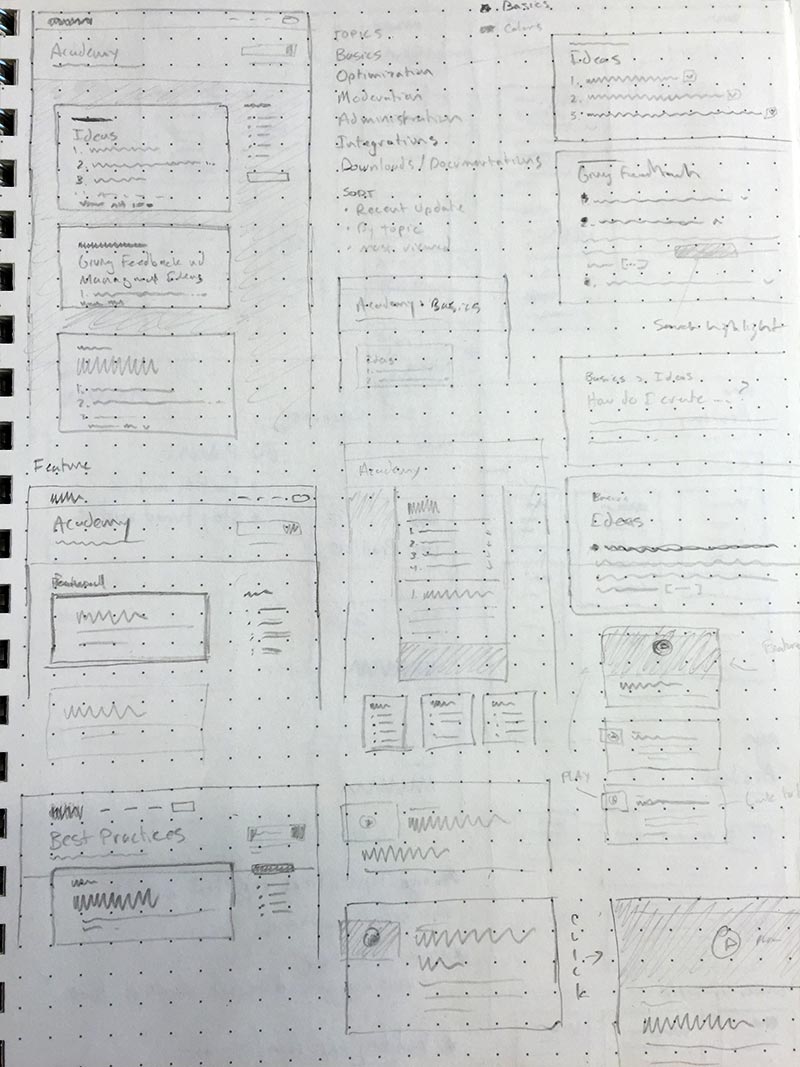 Academy
Ideas
1.
2.
3.
Giving Feedback
1.
1.
2.
2.
Feature
Academy
Best Practices
TOPICS
Basics
Optimization
Moderation
Administration
Integrations
Downloads / Documentations
SORT
• Recent Update
• By topic
• most viewed
Academy > Basics
Ideas
Academy
1.
2.
3.
4.
1.
Basics
Colors
Ideas
1.
2.
3.
Giving Feedback
2.
[...]
Search highlight
Basics > Ideas
How do I create ... ?
Basics
Ideas
[...]
PLAY
CLICK